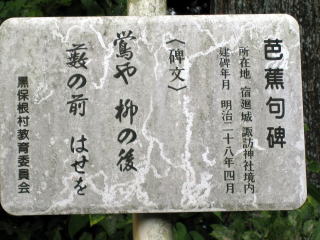 芭蕉句碑
所在地 宿廻城 諏訪神社境内
建碑年月 明治二十八年四月
〈碑文〉
鶯や 柳の後
藪の前 はせを
黒保根村教育委員会